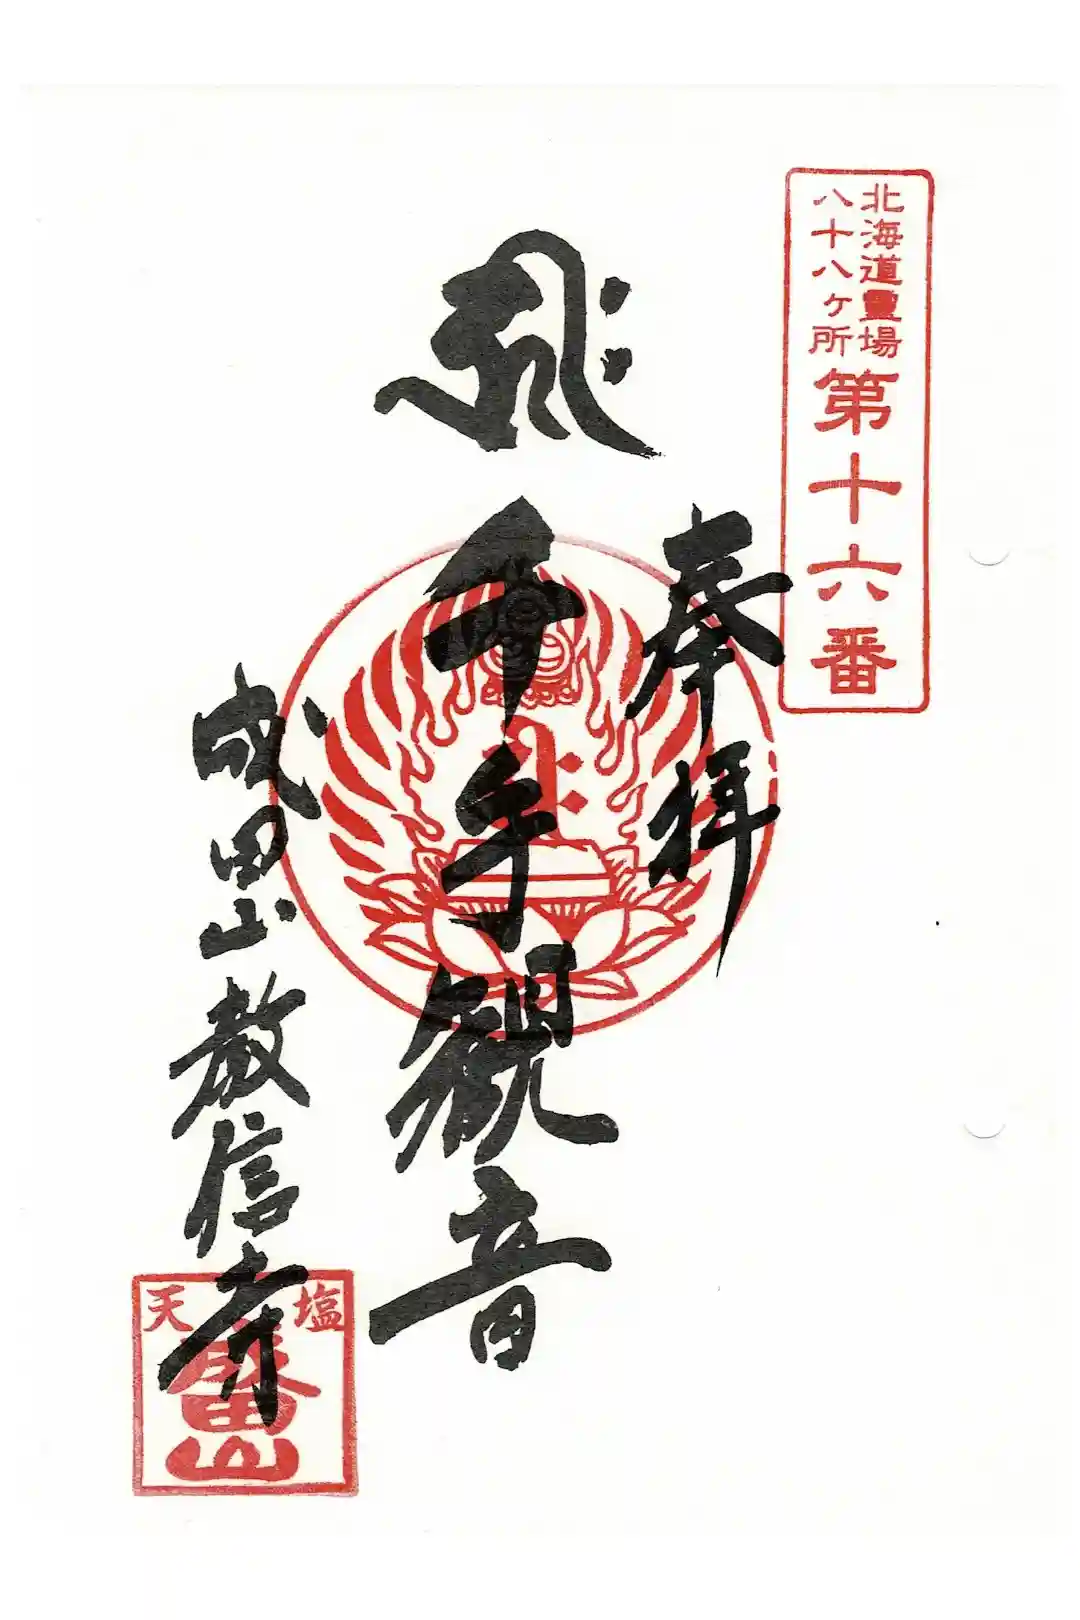 北海道霊場
八十八ヶ所
第十六番
奉拝
千手観音
成田山教信寺
天塩
成田山